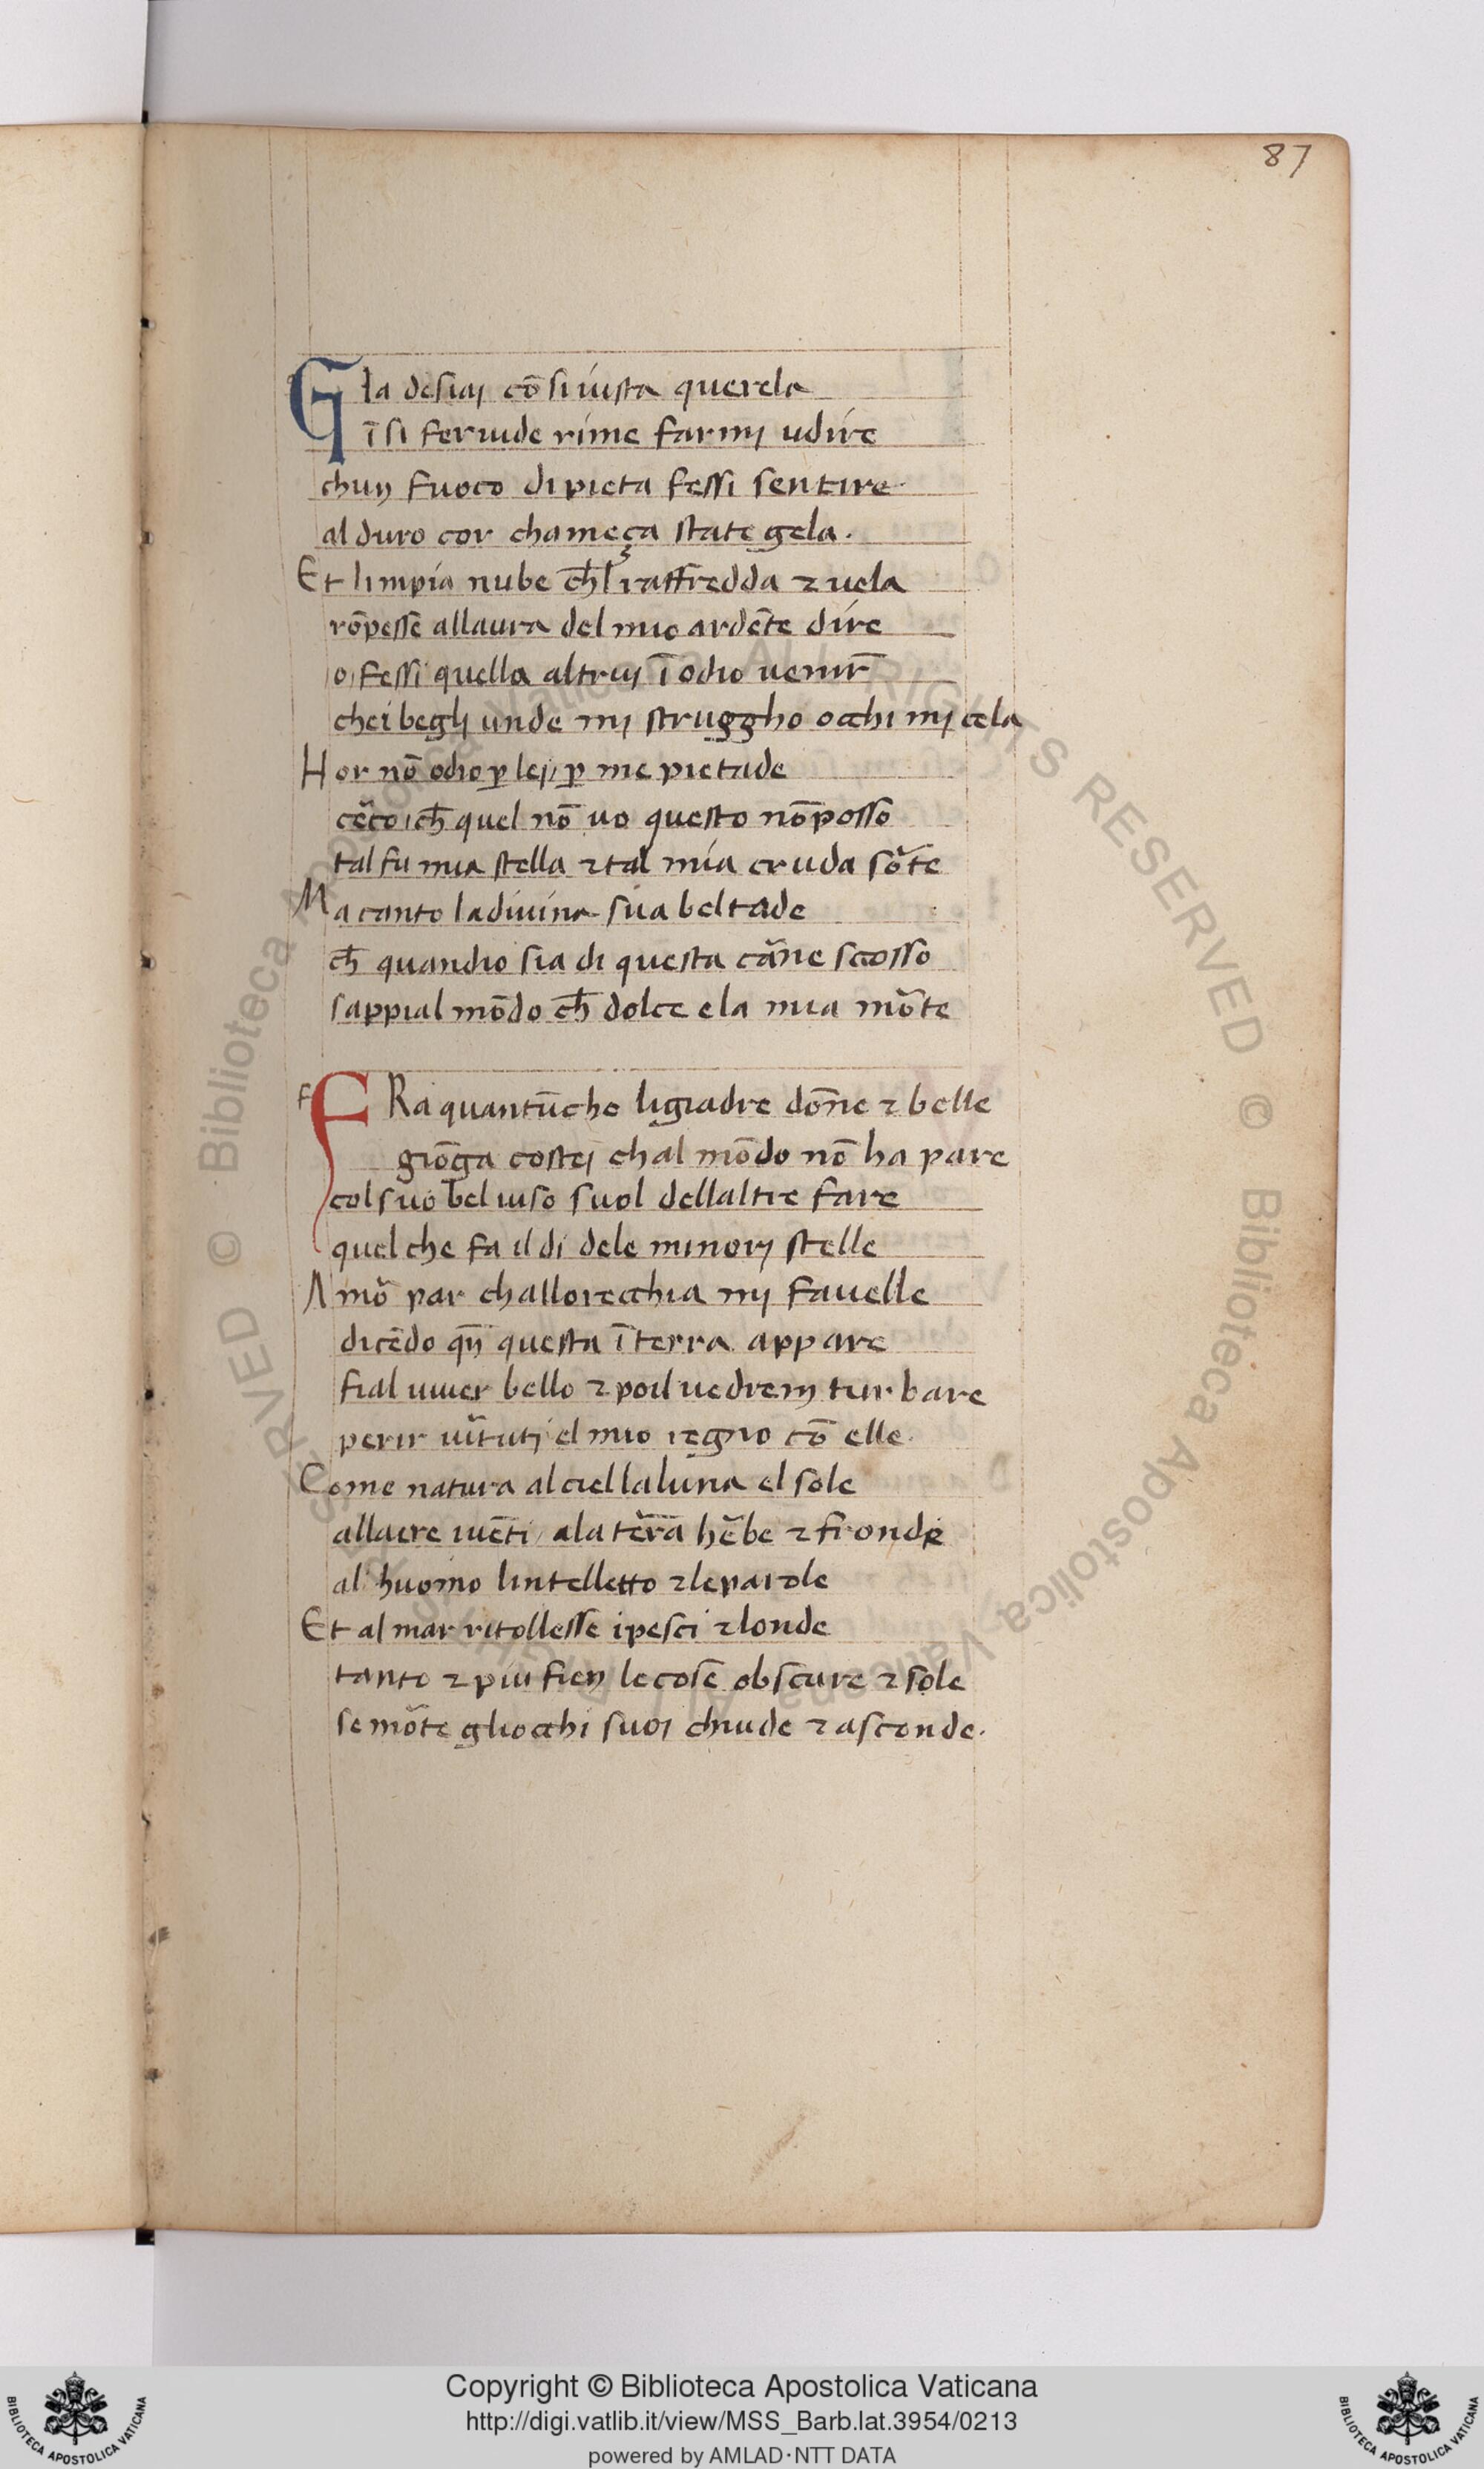 87
GIa desiaj cō si iusta querela
ī si feruide rime farmj udire
chuŋ fuoco di pieta fessi sentire
al duro cor chameça state gela.
Et limpia nube ch̄l raffredda ⁊ uela
rōpesse allaura del mio ardēte dire
o fessi quella altruj ī odio uenir̄
chei beglj unde mj struggho occhi mj cela
Hor nō odio ꝑ lej, ꝑ me pietade
cēco, ch̄ quel nō uo questo nō posso
tal fu mia stella ⁊ tal mia cruda sōte
Ma canto la diuina sua beltade
ch̄ quandio sia di questa cāne scosso
sappial mōdo ch̄ dolce e la mia mōte
f
FRa quantūche ligiadre dōne ⁊ belle
giōga costej chal mōdo nō ha pare
col suo bel uiso suol dellaltre fare
quel che fa il di dele minorj stelle
Amō par challorecchia mj fauelle
dicēdo qn̄ questa ī terra appare
fial uiuer bello ⁊ poil uedrem turbare
perir uītutj el mio regno cō elle.
Come natura al ciel la luna el sole
allaere iuēti, ala tēra hēbe ⁊ fronde
al huomo lintelletto ⁊ le parole
Et al mar ritollesse i pesci ⁊ londe
tanto ⁊ piu fien le cose obscure ⁊ sole
se mōte gliocchi suoi chiude ⁊ asconde.
ALL RIGHTS RESERVED © Biblioteca Apostolica Vaticana
Copyright © Biblioteca Apostolica Vaticana
http://digi.vatlib.it/view/MSS_Barb.lat.3954/0213
powered by AMLAD·NTT DATA
BIBLIOTECA APOSTOLICA VATICANA
BIBLIOTECA APOSTOLICA VATICANA